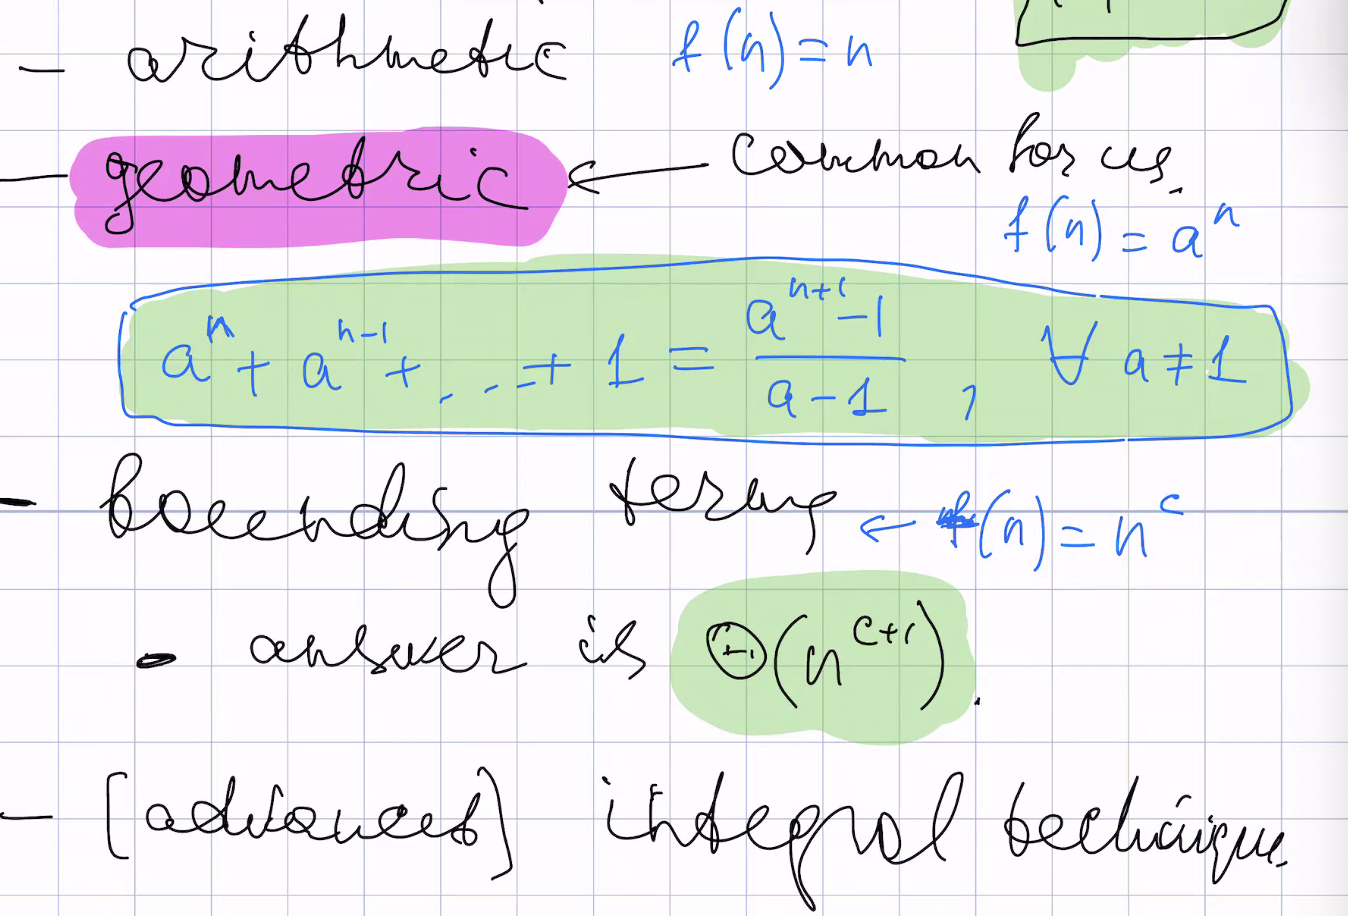 - arithmetic f(n) = n
- geometric ← common for us.
f(n) = a^n
a^n + a^{n-1} + ... + 1 = \frac{a^{n+1} - 1}{a - 1}, ∀ a ≠ 1
- bounding terms ← f(n) = n^c
- answer is Θ(n^{c+1}).
- [advanced] integral technique